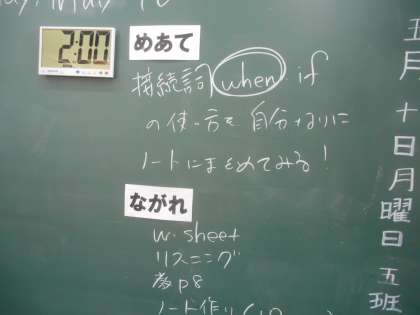 2:00
めあて
接続詞 when if
の使い方を自分なりに
ノートにまとめてみる!
ながれ
w. sheet
リスニング
p8
ノート作り
五月十日月曜日五班